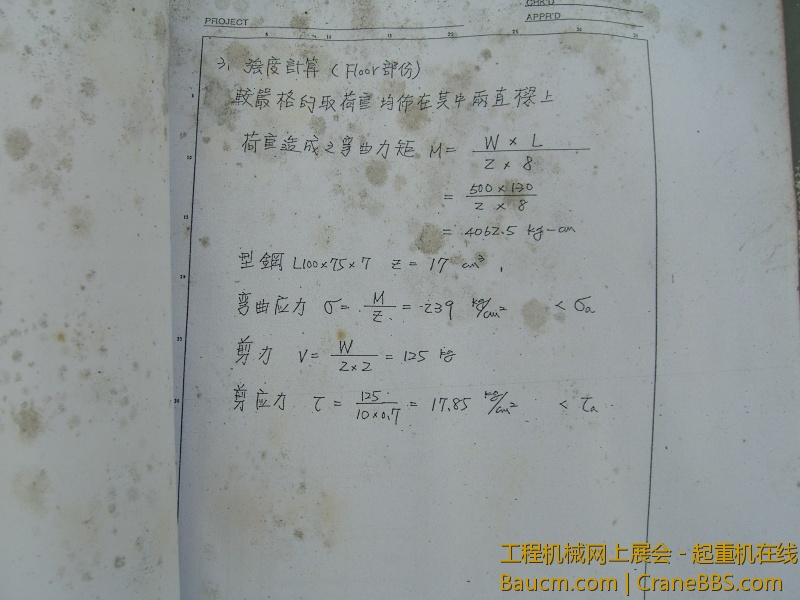 CHK'D
PROJECT
APPR'D
5 10 15 20 25 30 35
3. 強度計算 (Floor部份)
較嚴格的取荷重均佈在其中兩直樑上
荷重造成之弯曲力矩 M= W × L / 2 × 8
= 500 × 130 / 2 × 8
= 4062.5 kg-cm
型鋼 L100×75×7 Z = 17 cm³
弯曲应力 σ = M / Z = 239 kg/cm² < σa
剪力 V = W / 2×2 = 125 kg
剪应力 τ = 125 / 10×0.7 = 17.85 kg/cm² < τa
工程机械网上展会 - 起重机在线
Baucm.com | CraneBBS.com